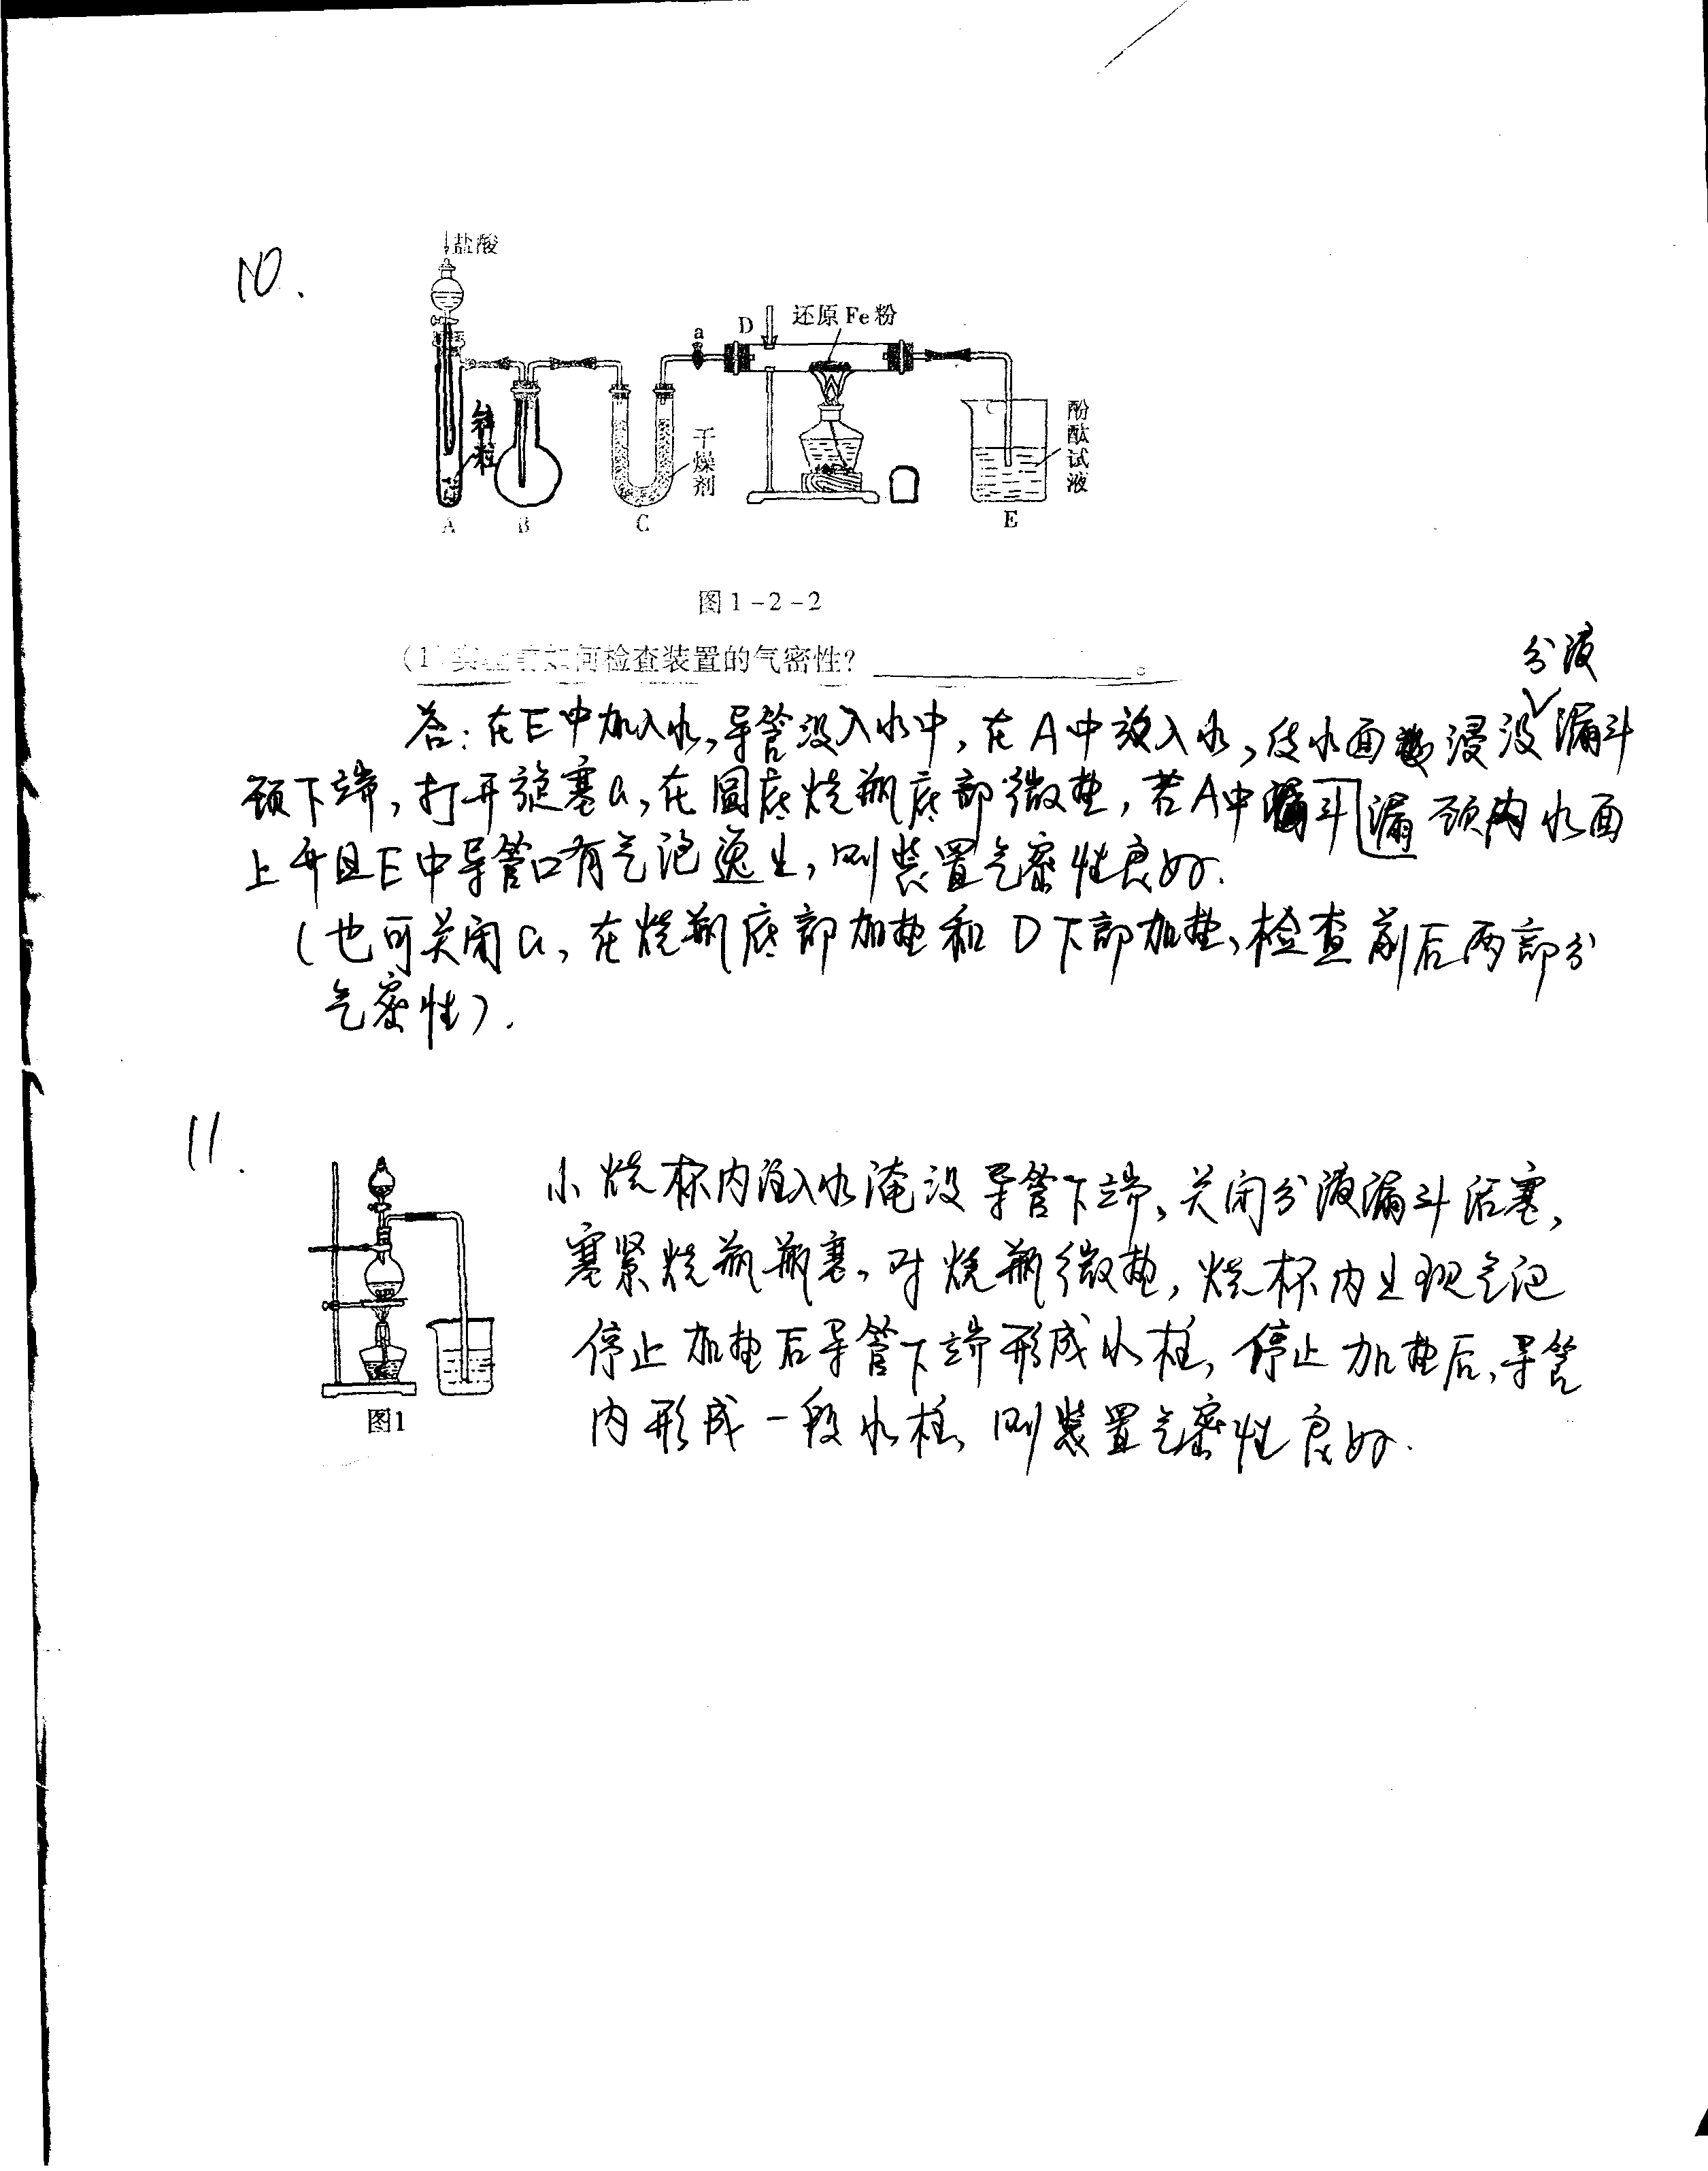 10.
盐酸
还原Fe粉
D
a
锌粒
干燥剂
酚酞试液
A
B
C
E
图1-2-2
(1)实验前如何检查装置的气密性? ______。
分液
答:在E中加入水,导管没入水中,在A中放入水,使水面浸没漏斗
颈下端,打开旋塞a,在圆底烧瓶底部微热,若A中漏斗漏颈内水面
上升且E中导管口有气泡逸出,则装置气密性良好.
(也可关闭a,在烧瓶底部加热和D下部加热,检查前后两部分
气密性).
11.
小烧杯内注入水淹没导管下端、关闭分液漏斗活塞,
塞紧烧瓶瓶塞、对烧瓶微热,烧杯内出现气泡
停止加热后导管下端形成水柱,停止加热后,导管
内形成一段水柱、则装置气密性良好.
图1